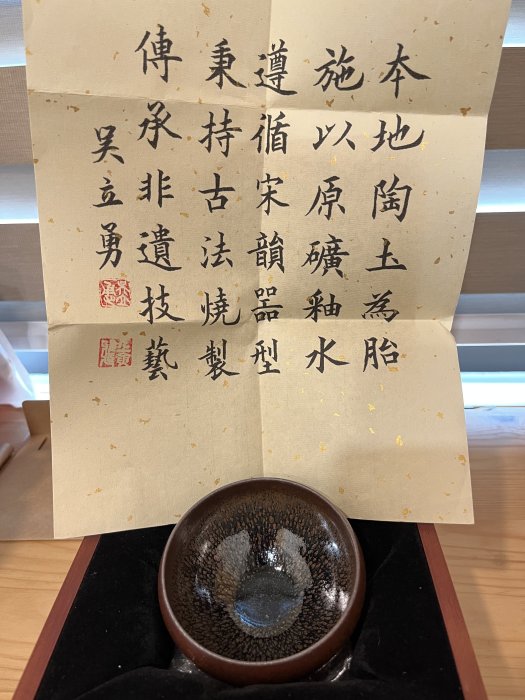 本地陶土為胎
施以原礦釉水
遵循宋韻器型
秉持古法燒製
傳承非遺技藝
吳立勇